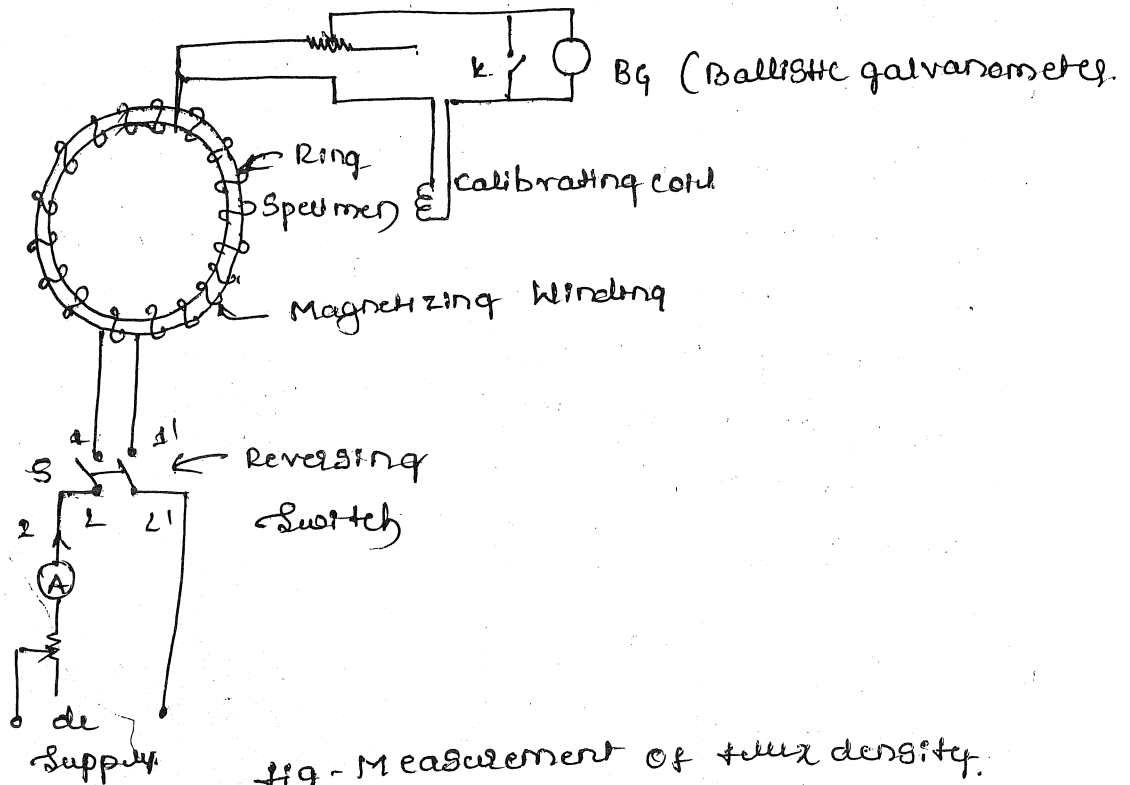 K.
BG (Ballistic galvanometer.
Ring
Specimen
Calibrating coil
Magnetizing Winding
1 1'
S
Reversing
Switch
2 2'
I
A
dc
Supply.
fig - Measurement of flux density.